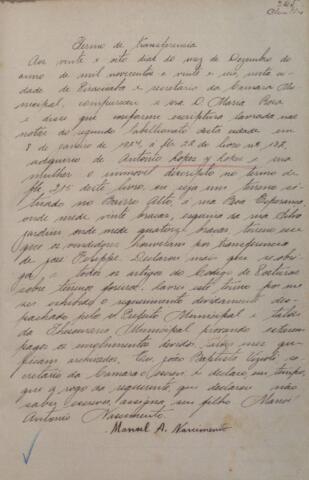 Termo de transferencia
Aos vinte e oito dias do mez de Dezembro do
anno de mil novecentos e vinte e seis, nesta ci-
dade de Piracicaba e secretaria da Camara Mu-
nicipal, compareceu a sra D. Maria Rosa
e disse que conforme escriptura lavrada nas
notas do segundo tabellionato desta cidade em
8 de janeiro de 1924, á fls 22 do livro nº 132,
adquiriu de Antonio Lopes y Lopes e sua
mulher o immovel descripto no termo de
fls, 215 deste livro, ou seja um terreno si-
tuado no Bairro Alto, á rua Boa Esperança,
onde mede vinte braças, esquina da rua Silva
Jardim, onde mede quatorze braças, terreno esse
que os vendedores houveram por transferencia
de José Felippe. Declarou mais que se obri-
ga a todos os artigos do Codigo de Posturas
sobre terreno foreiro. Lavrei este termo por me
ser exhibido o requerimento devidamente des-
pachado pelo Sr Prefeito Municipal e talão
da Thesouraria Municipal provando estarem
pagos os emolumentos devidos, que
ficam archivados. Eu João Baptista se-
cretario da Camara escrevi e declaro, em tempo,
que a rogo da requerente que declarou não
saber escrever, assigna seu filho Manoel
Antonio Nascimento.
Manoel A. Nascimento